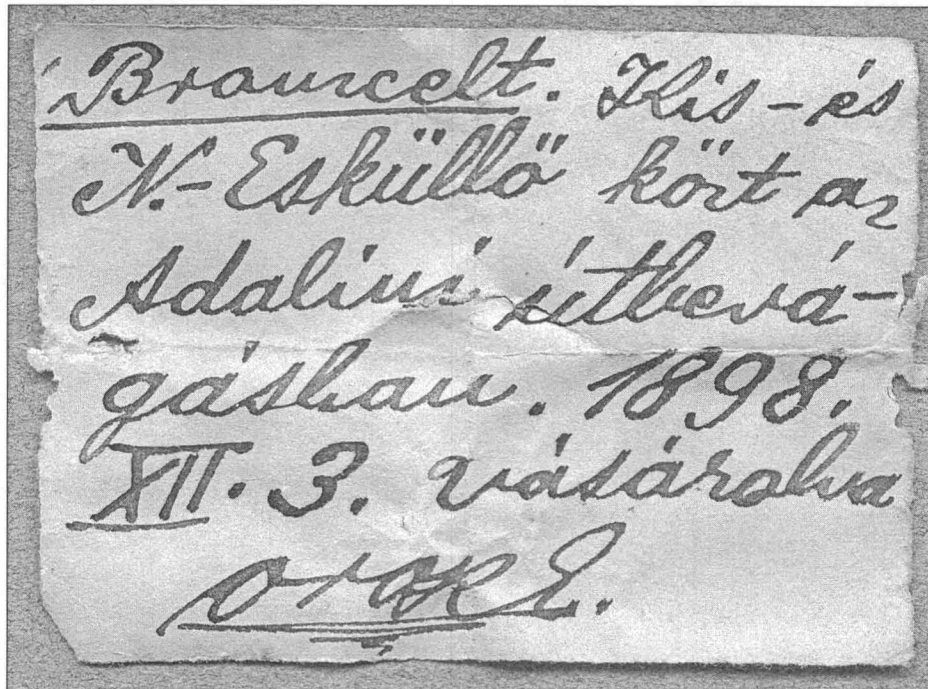 Broncelt. Kis- és
N.-Esküllő közt az
Adalini útbevá-
gásban. 1898.
XII. 3. vásárolva
Orosz E.